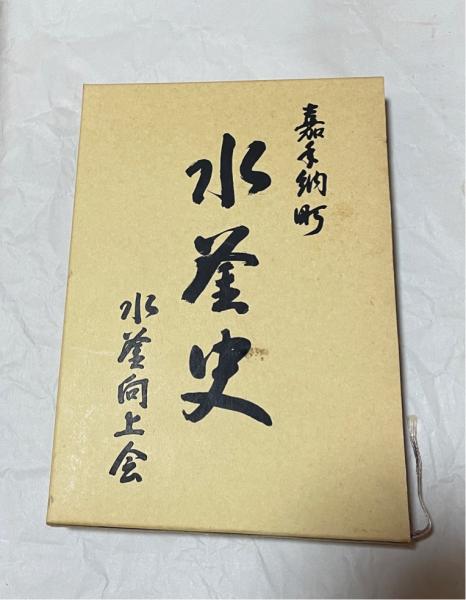 嘉手納町
水釜史
水釜向上会